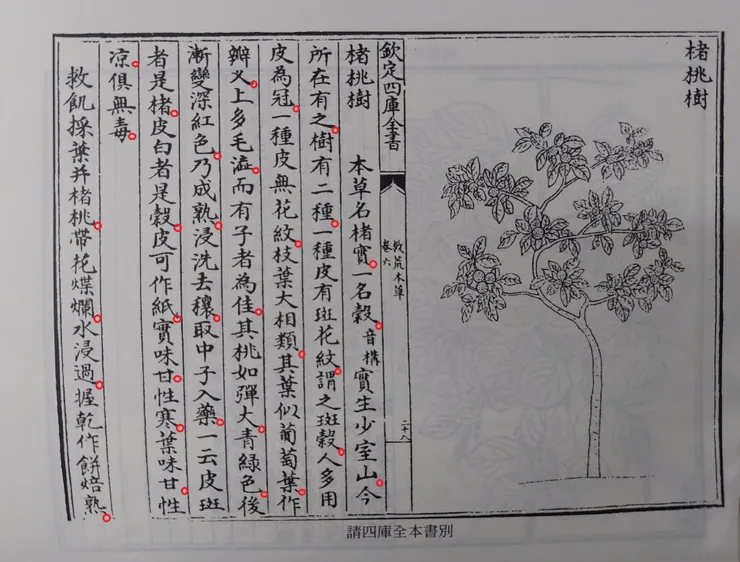 楮桃樹
欽定四庫全書
救荒本草
卷六
二十八
楮桃樹 本草名楮實一名榖音構實生少室山今
所在有之樹有二種一種皮有斑花紋謂之斑榖人多用
皮為冠一種皮無花紋枝葉大相類其葉似葡萄葉作
瓣叉上多毛澁而有子者為佳其桃如彈大青綠色後
漸變深紅色乃成熟浸洗去穰取中子入藥一云皮斑
者是楮皮白者是榖皮可作紙實味甘性寒葉味甘性
凉俱無毒
救飢採葉并楮桃帶花煠爛水浸過握乾作餅焙熟
請四庫全本書別